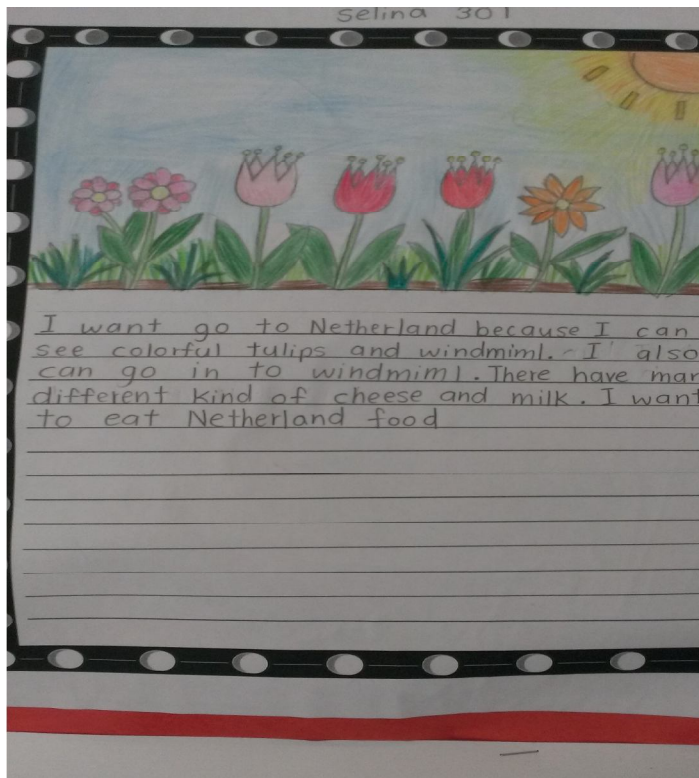 Selina 301
I want go to Netherland because I can
see colorful tulips and windmiml. I also
can go in to windmiml. There have man
different kind of cheese and milk. I want
to eat Netherland food